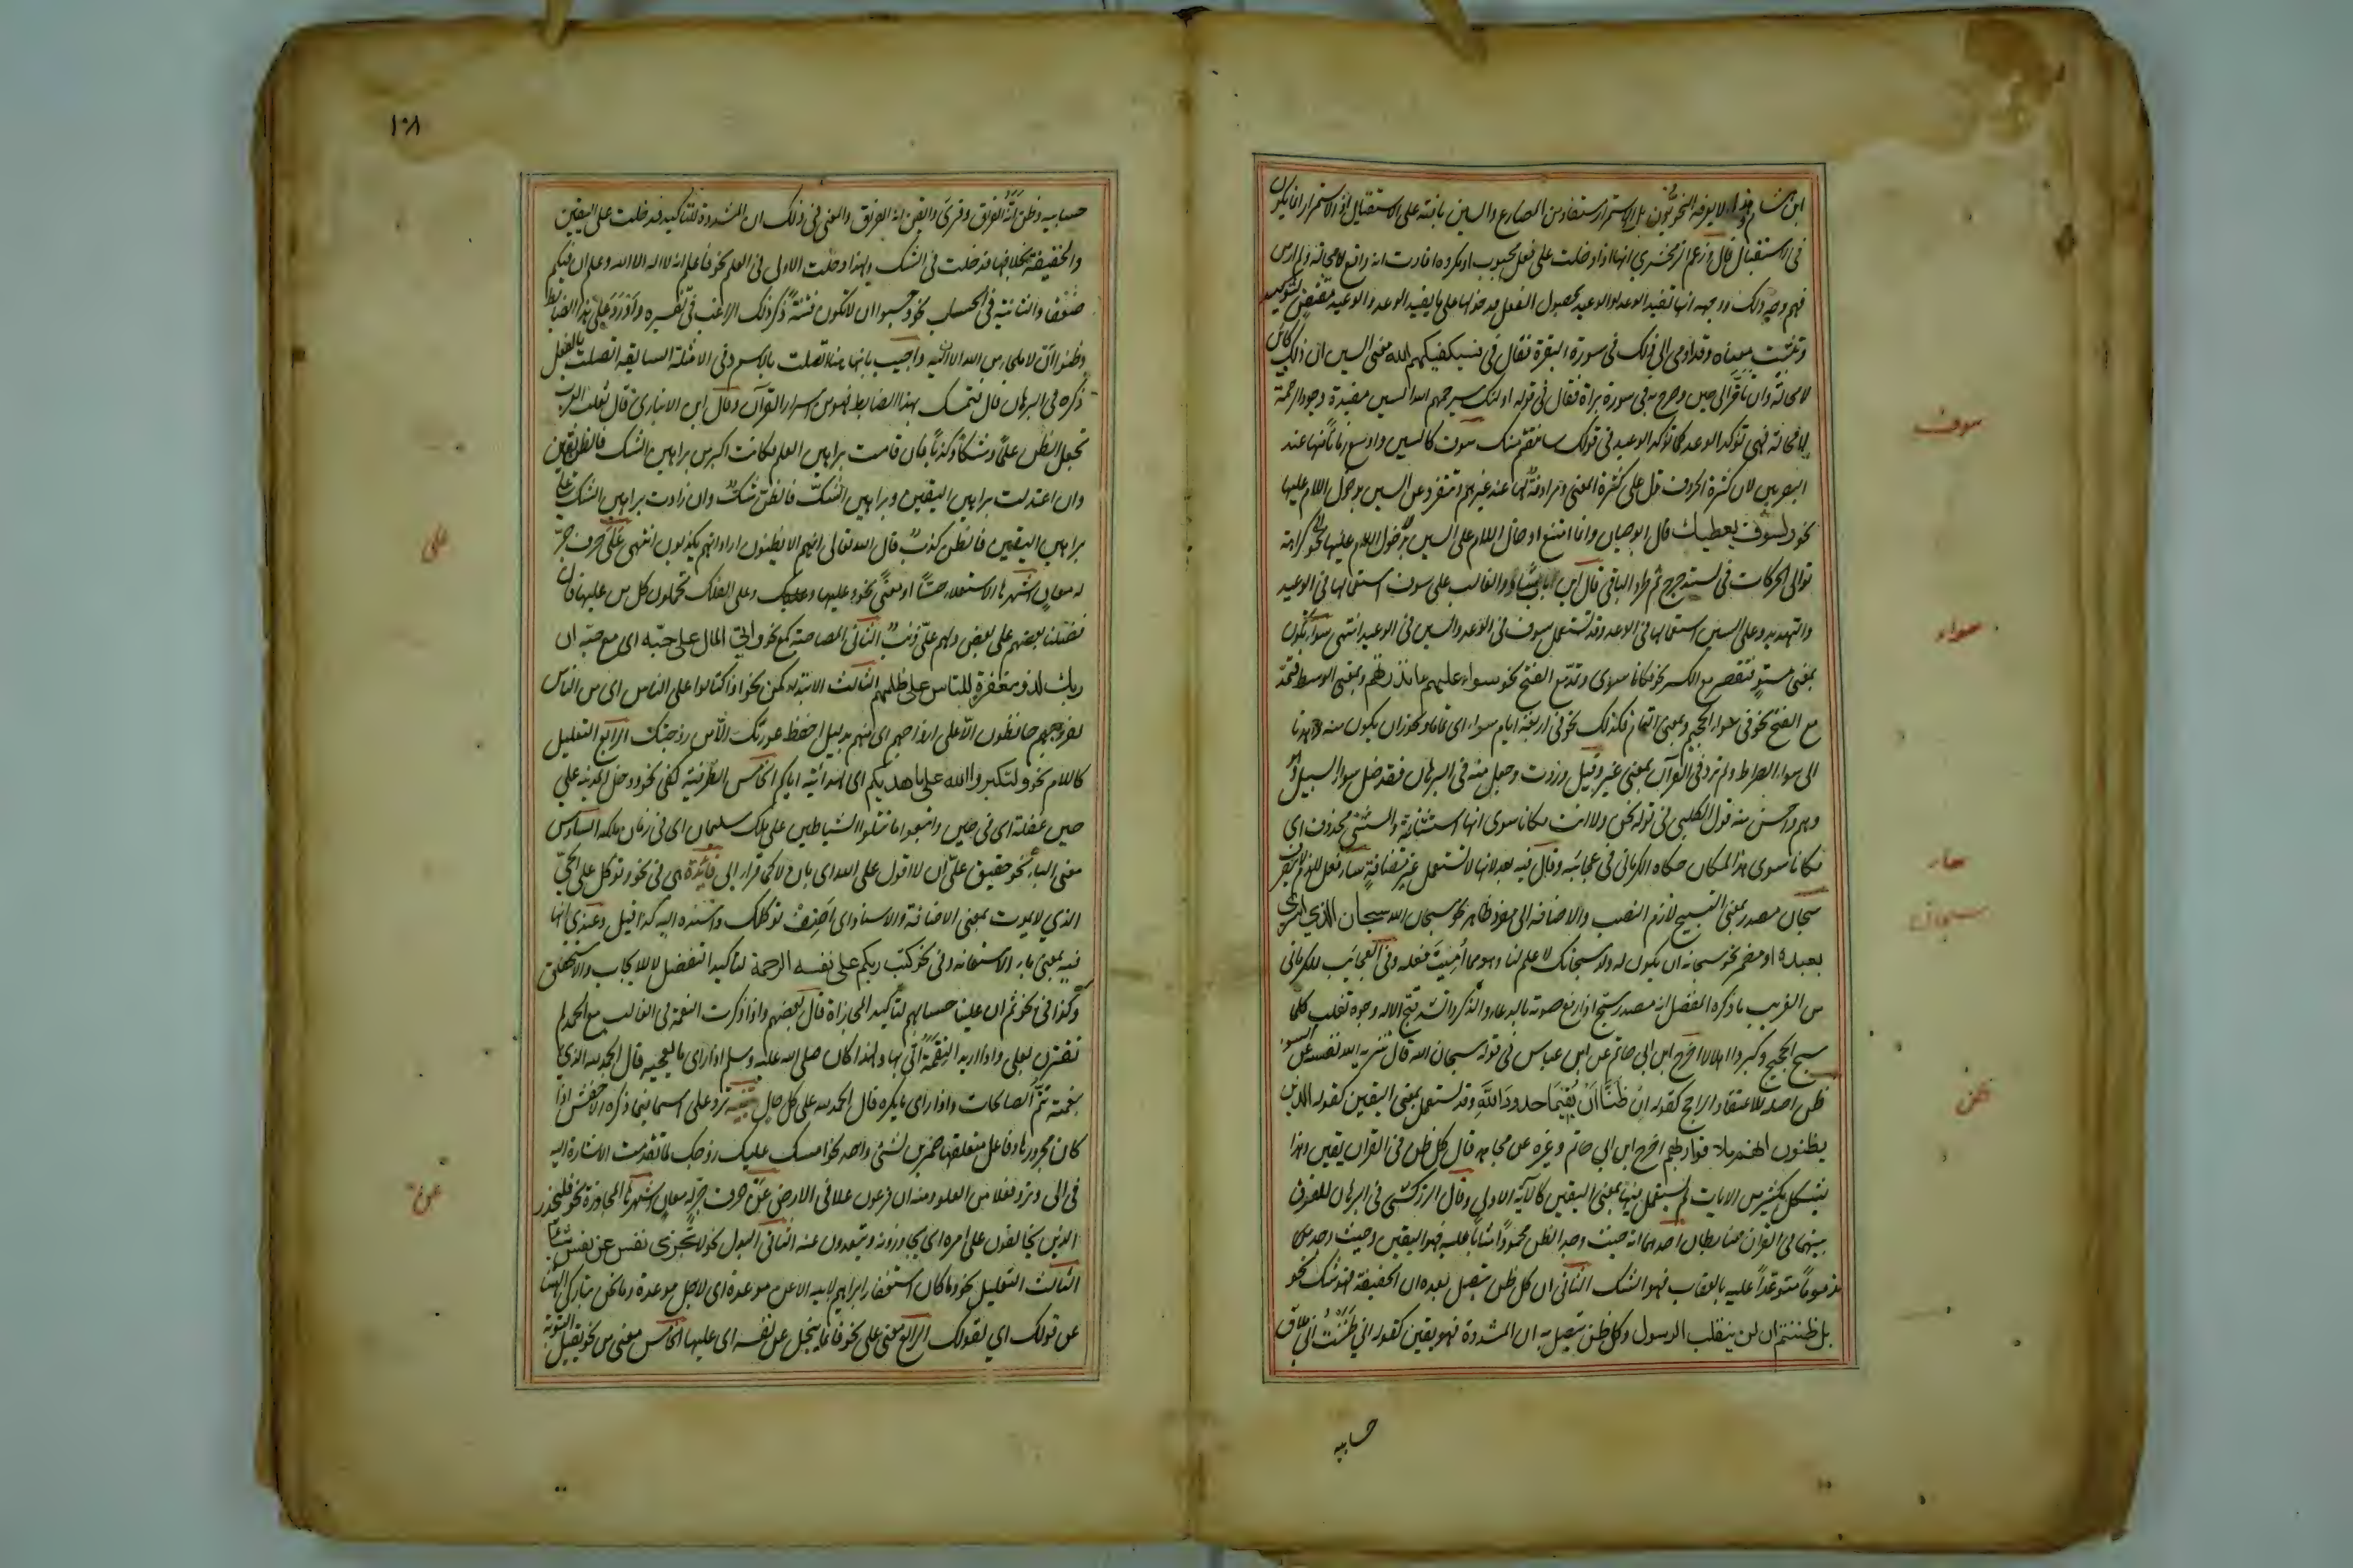 ابن هشام وهذا لا يعرفه النحويون بل الاستمرار مستفاد من المضارع والسين باقية على الاستقبال اذ الاستمرار انما يكون
فى الاستقبال قال وزعم الزمخشري انها اذا دخلت على فعل محبوب او مكروه افادت انه واقع لا محالة ولم ار من
فهم وجه ذلك ووجهه انها تفيد الوعد او الوعيد بحصول الفعل فدخولها على ما يفيد الوعد والوعيد مقتض لتوكيده
وتثبيت معناه وقد اومى الى ذلك فى سورة البقرة فقال فى فسيكفيكهم الله معنى السين ان ذلك كائن
لا محالة وان تأخر الى حين وصرح به فى سورة براة فقال فى قوله اولئك سيرحمهم الله السين مفيدة وجود الرحمة
لا محالة فهى تؤكد الوعد كما تؤكد الوعيد فى قولك سانتقم منك سوف كالسين واوسع زمانا منها عند
البصريين لان كثرة الحروف تدل على كثرة المعنى ومرادفة لها عند غيرهم وتنفرد عن السين بدخول اللام عليها
نحو ولسوف يعطيك قال ابو حيان وانما امتنع ادخال اللام على السين كراهة
توالى الحركات فى لسيتدحرج ثم طرد الباقى قال ابن بابشاذ والغالب على سوف استعمالها فى الوعيد
والتهديد وعلى السين استعمالها فى الوعد وقد تستعمل سوف فى الوعد والسين فى الوعيد انتهى سواء تكون
بمعنى مستو فتقصر مع الكسر نحو مكانا سوى وتمد مع الفتح نحو سواء عليهم ءانذرتهم وبمعنى الوسط فتمد
مع الفتح نحو فى سواء الجحيم وبمعنى التمام فكذلك نحو فى اربعة ايام سواء اى تماما ويجوز ان يكون منه واهدنا
الى سواء الصراط ولم ترد فى القرآن بمعنى غير وقيل وردت وجعل منه فى البرهان فقد ضل سواء السبيل وهو
وهم واحسن منه قول الكلبى فى قوله نحن ولا انت مكانا سوى انها استثنائية والمستثنى محذوف اى
مكانا سوى هذا المكان حكاه الكرمانى فى عجائبه وقال فيه بعد لانها لا تستعمل غير مضافة ساء فعل للذم لا يتصرف
سبحان مصدر بمعنى التسبيح لازم النصب والاضافة الى مفرد ظاهر نحو سبحان الله سبحان الذي اسرى
بعبده او مضمر نحو سبحانه ان يكون له ولد سبحانك لا علم لنا وهو مما اميت فعله وفى العجائب للكرمانى
من الغريب ما ذكره المفضل انه مصدر سبح اذا رفع صوته بالدعاء والذكر وانشد قبح الاله وجوه تغلب كلما
سبح الحجيج وكبروا اهلالا اخرج ابن ابى حاتم عن ابن عباس فى قوله سبحان الله قال تنزيه الله نفسه عن السوء
ظن اصله للاعتقاد الراجح كقوله ان ظنا ان يقيما حدود الله وقد تستعمل بمعنى اليقين كقوله الذين
يظنون انهم ملاقوا ربهم اخرج ابن ابى حاتم وغيره عن مجاهد قال كل ظن فى القرآن يقين وهذا
يشكل بكثير من الايات لم تستعمل فيها بمعنى اليقين كالآية الاولى وقال الزركشى فى البرهان للفرق
بينهما فى القرآن ضابطان احدهما انه حيث وجد الظن محمودا مثابا عليه فهو اليقين وحيث وجد
مذموما متوعدا عليه بالعقاب فهو الشك الثانى ان كل ظن يتصل بعده ان الخفيفة فهو شك نحو
بل ظننتم ان لن ينقلب الرسول وكل ظن يتصل به ان المشددة فهو يقين كقوله اني ظننت اني ملاق
حسابيه
سوف
سواء
ساء
سبحان
ظن
١٠٨
حسابيه وظن انه الفراق وقرئ وايقن انه الفراق والمعنى فى ذلك ان المشددة للتأكيد فدخلت على اليقين
والخفيفة بخلافها فدخلت فى الشك ولهذا دخلت الاولى فى العلم نحو فاعلم انه لا اله الا الله وعلم ان فيكم
ضعفا والثانية فى الحسبان نحو وحسبوا ان لا تكون فتنة ذكر ذلك الراغب فى تفسيره واورد على هذا الضابط
وظنوا ان لا ملجأ من الله الا اليه واجيب بانها هنا اتصلت بالاسم وفى الامثلة السابقة اتصلت بالفعل
ذكره فى البرهان قال فتمسك بهذا الضابط فهو من اسرار القرآن وقال ابن الانبارى قال ثعلب العرب
تجعل الظن علما وشكا وكذبا فان قامت براهين العلم فكانت اكبر من براهين الشك فالظن يقين
وان اعتدلت براهين اليقين وبراهين الشك فالظن شك وان زادت براهين الشك على
براهين اليقين فالظن كذب قال الله تعالى ان هم الا يظنون اراد انهم يكذبون انتهى على حرف جر
له معان اشهرها الاستعلاء حسا او معنى نحو وعليها وعلى الفلك تحملون كل من عليها فان
فضلنا بعضهم على بعض ولهم على ذنب الثانى المصاحبة كمع نحو واتى المال على حبه اى مع حبه ان
ربك لذو مغفرة للناس على ظلمهم الثالث الابتداء كمن نحو اذا كتالوا على الناس اى من الناس
لفروجهم حافظون الا على ازواجهم اى منهم بدليل احفظ عورتك الا من زوجتك الرابع التعليل
كاللام نحو ولتكبروا الله على ما هديكم اى لهدايته اياكم الخامس الظرفية كفى نحو ودخل المدينة على
حين غفلة اى فى حين واتبعوا ما تتلوا الشياطين على ملك سليمان اى فى زمان ملكه السادس
معنى الباء نحو حقيق على ان لا اقول على الله اى بان لا كما قرأ ابى فائدة هى فى نحو وتوكل على الحي
الذي لا يموت بمعنى الاضافة والاسناد اى اضف توكلك واسنده اليه كذا قيل وعندي انها
فيه بمعنى باء الاستعانة وفى نحو كتب ربكم على نفسه الرحمة لتأكيد التفضل لا للايجاب والاستحقاق
وكذا فى نحو ثم ان علينا حسابهم لتأكيد المجازاة قال بعضهم واذا ذكرت النعمة فى الغالب مع الحمد لم
تقترن بعلى واذا اريد النقمة اتى بها ولهذا كان صلى الله عليه وسلم اذا راى ما يعجبه قال الحمد لله الذي
بنعمته تتم الصالحات واذا راى ما يكره قال الحمد لله على كل حال تنبيه ترد على اسما فيما ذكره الاخفش اذا
كان مجرورها وفاعل متعلقها ضميرين لمسمى واحد نحو امسك عليك زوجك لما تقدمت الاشارة اليه
فى الى وترد فعلا من العلو ومنه ان فرعون علا فى الارض عن حرف جر له معان اشهرها المجاوزة نحو فليحذر
الذين يخالفون على امره اى يجاوزونه ويتعدون عنه الثانى البدل نحو لا تجزى نفس عن نفس شيئا
الثالث التعليل نحو وما كان استغفار ابراهيم لابيه الا عن موعدة اى لاجل موعدة وما نحن بتاركى الهتنا
عن قولك اي لقولك الرابع معنى على نحو فانما يبخل عن نفسه اى عليها الخامس معنى من نحو يقبل التوبة
على
عن